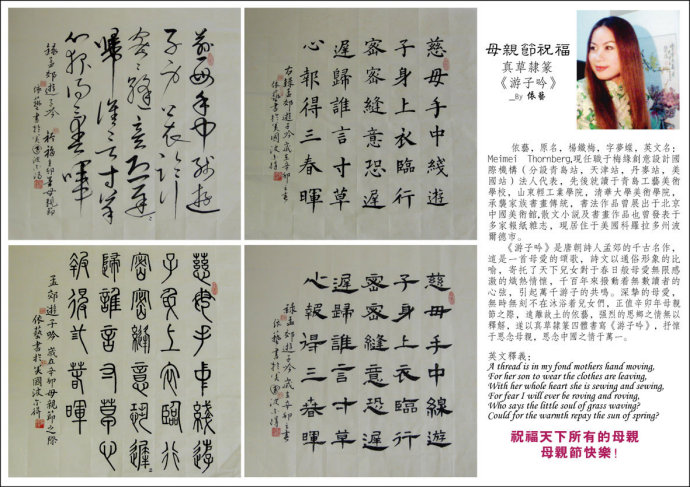 母親節祝福
真草隸篆
《游子吟》
_By 依藝
依藝，原名，楊鐵梅，字夢媛，英文名；
Meimei Thornberg,現任職于梅緣創意設計國
際機構（分設青島站，天津站，丹麥站，美
國站）法人代表，先後就讀于青島工藝美術
學校，山東輕工業學院，清華大學美術學院，
承襲家族書畫傳統，書法作品曾展出于北京
中國美術館,散文小説及書畫作品也曾發表于
多家報紙雜志，現居住于美國科羅拉多州波
爾德市。
《游子吟》是唐朝詩人孟郊的千古名作，
這是一首母愛的頌歌，詩文以通俗形象的比
喻，寄托了天下兒女對于春日般母愛無限感
激的熾熱情懷，千百年來撥動着無數讀者的
心弦，引起萬千游子的共鳴。深摯的母愛，
無時無刻不在沐浴着兒女們，正值辛卯年母親
節之際，遠離故土的依藝，强烈的思鄉之情無以
釋解，遂以真草隸篆四體書寫《游子吟》，抒懷
于思念母親，思念中國之情于萬一。
英文釋義：
A thread is in my fond mothers hand moving,
For her son to wear the clothes are leaving,
With her whole heart she is sewing and sewing,
For fear I will ever be roving and roving,
Who says the little soul of grass waving?
Could for the warmth repay the sun of spring?
祝福天下所有的母親
母親節快樂！
慈母手中綫遊
子身上衣臨行
密密縫意恐遲
遲歸誰言寸草
心報得三春暉
慈母手中綫遊
子身上衣臨行
密密縫意恐遲
遲歸誰言寸草
心報得三春暉
慈母手中線遊
子身上衣臨行
密密縫意恐遲
遲歸誰言寸草
心報得三春暉
慈母手中綫遊
子身上衣臨行
密密縫意恐遲
歸誰言寸草心
報得三春暉